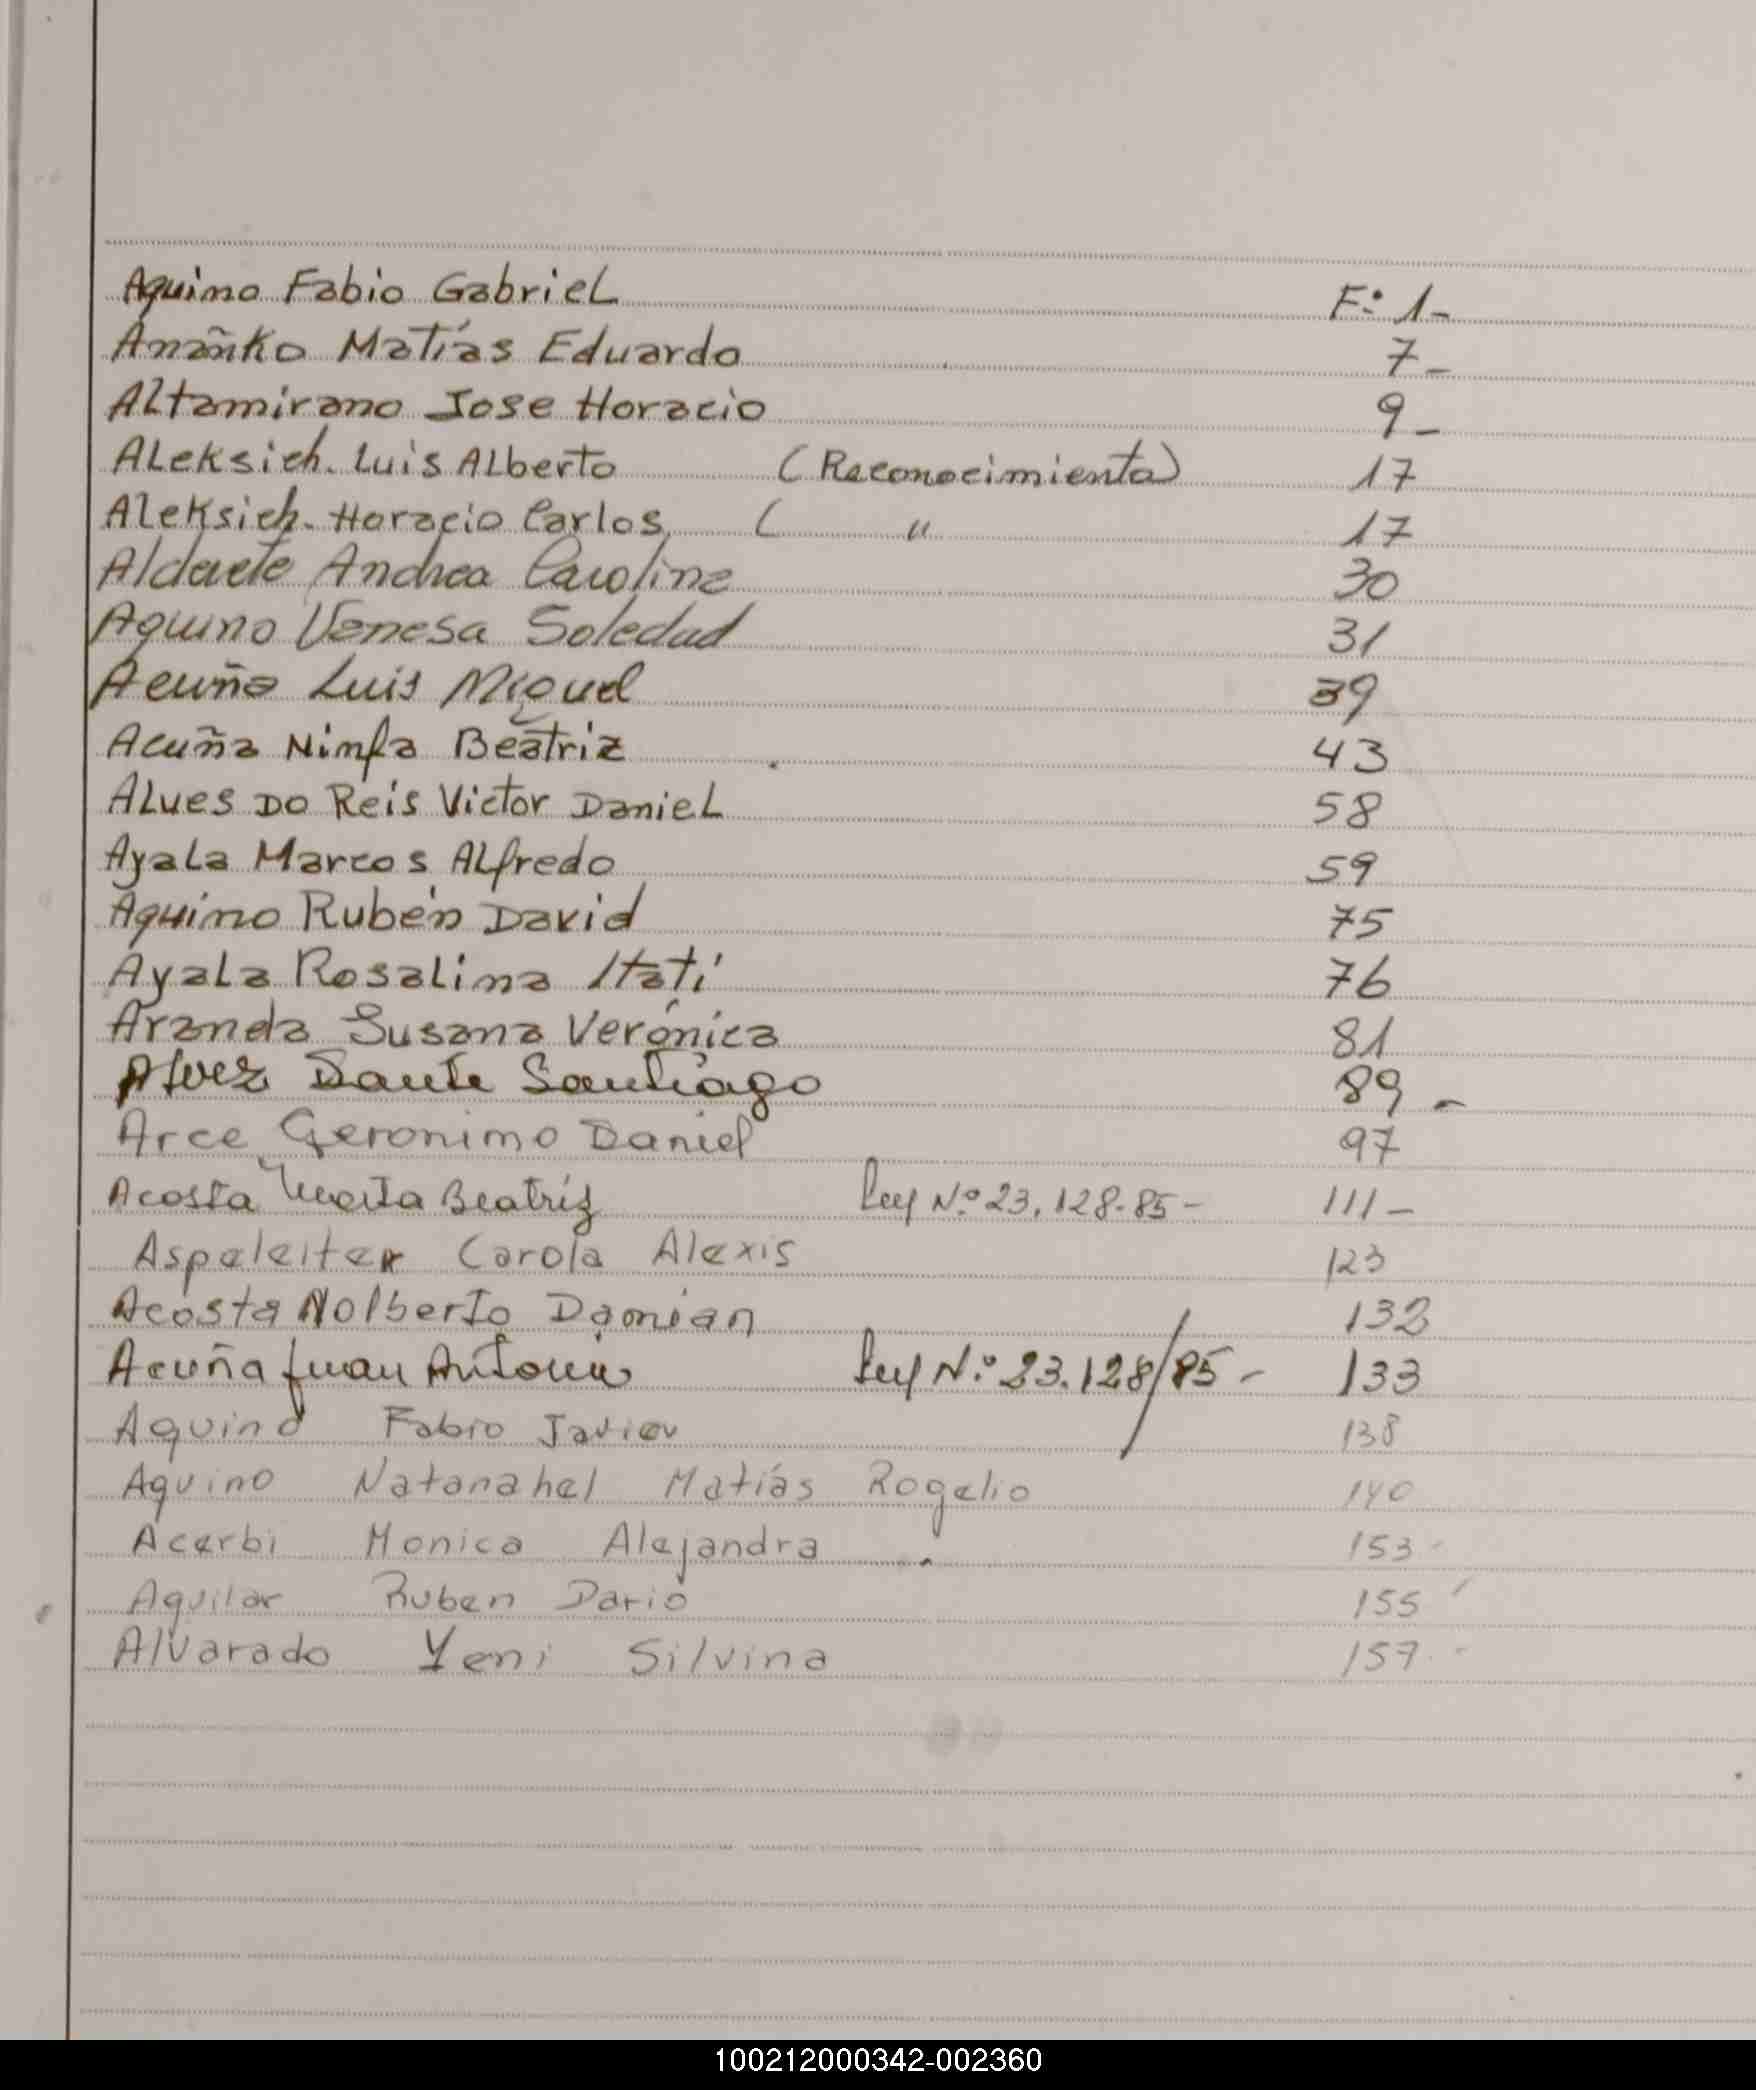 Aquino Fabio Gabriel F: 1-
Anañko Matías Eduardo 7-
Altamirano Jose Horacio 9-
Aleksich. Luis Alberto (Reconocimiento) 17
Aleksich. Horacio Carlos ( " 17
Alderete Andrea Carolina 30
Aquino Vanesa Soledad 31
Acuña Luis Miguel 39
Acuña Ninfa Beatriz 43
Alves Do Reis Victor Daniel 58
Ayala Marcos Alfredo 59
Aquino Rubén David 75
Ayala Rosalina Itatí 76
Aranda Susana Verónica 81
Alvez Dante Santiago 89-
Arce Geronimo Daniel 97
Acosta Marta Beatriz Ley Nº 23.128-85- 111-
Aspeleiter Carola Alexis 123
Acosta Nolberto Damian 132
Acuña Juan Antonio Ley Nº 23.128/85- 133
Aquino Fabio Javier 138
Aquino Natanahel Matías Rogelio 140
Acerbi Monica Alejandra 153-
Aguilar Ruben Dario 155
Alvarado Yeni Silvina 157-
100212000342-002360